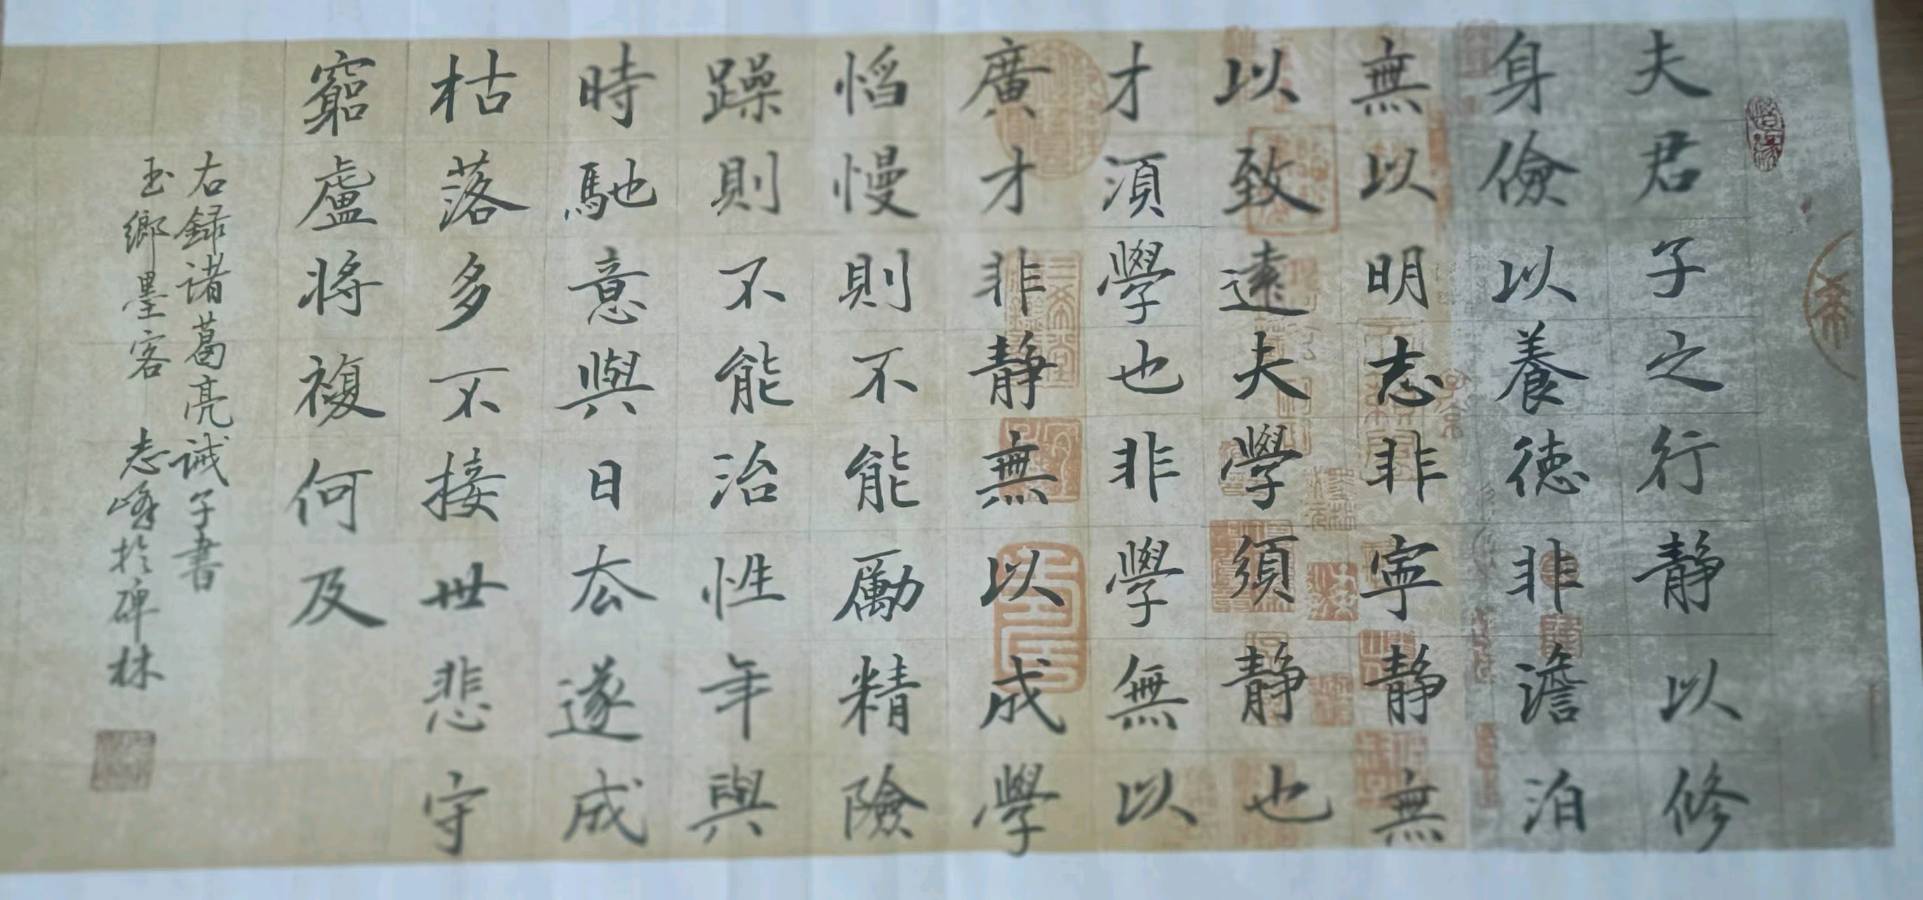 夫君子之行静以修
身儉以養德非澹泊
無以明志非寧静無
以致遠夫學須静也
才湏學也非學無以
廣才非静無以成學
慆慢則不能勵精險
躁則不能治性年與
時馳意與日去遂成
枯落多不接世悲守
窮盧將複何及
右録诸葛亮诫子書
玉鄉墨客 志峰於碑林